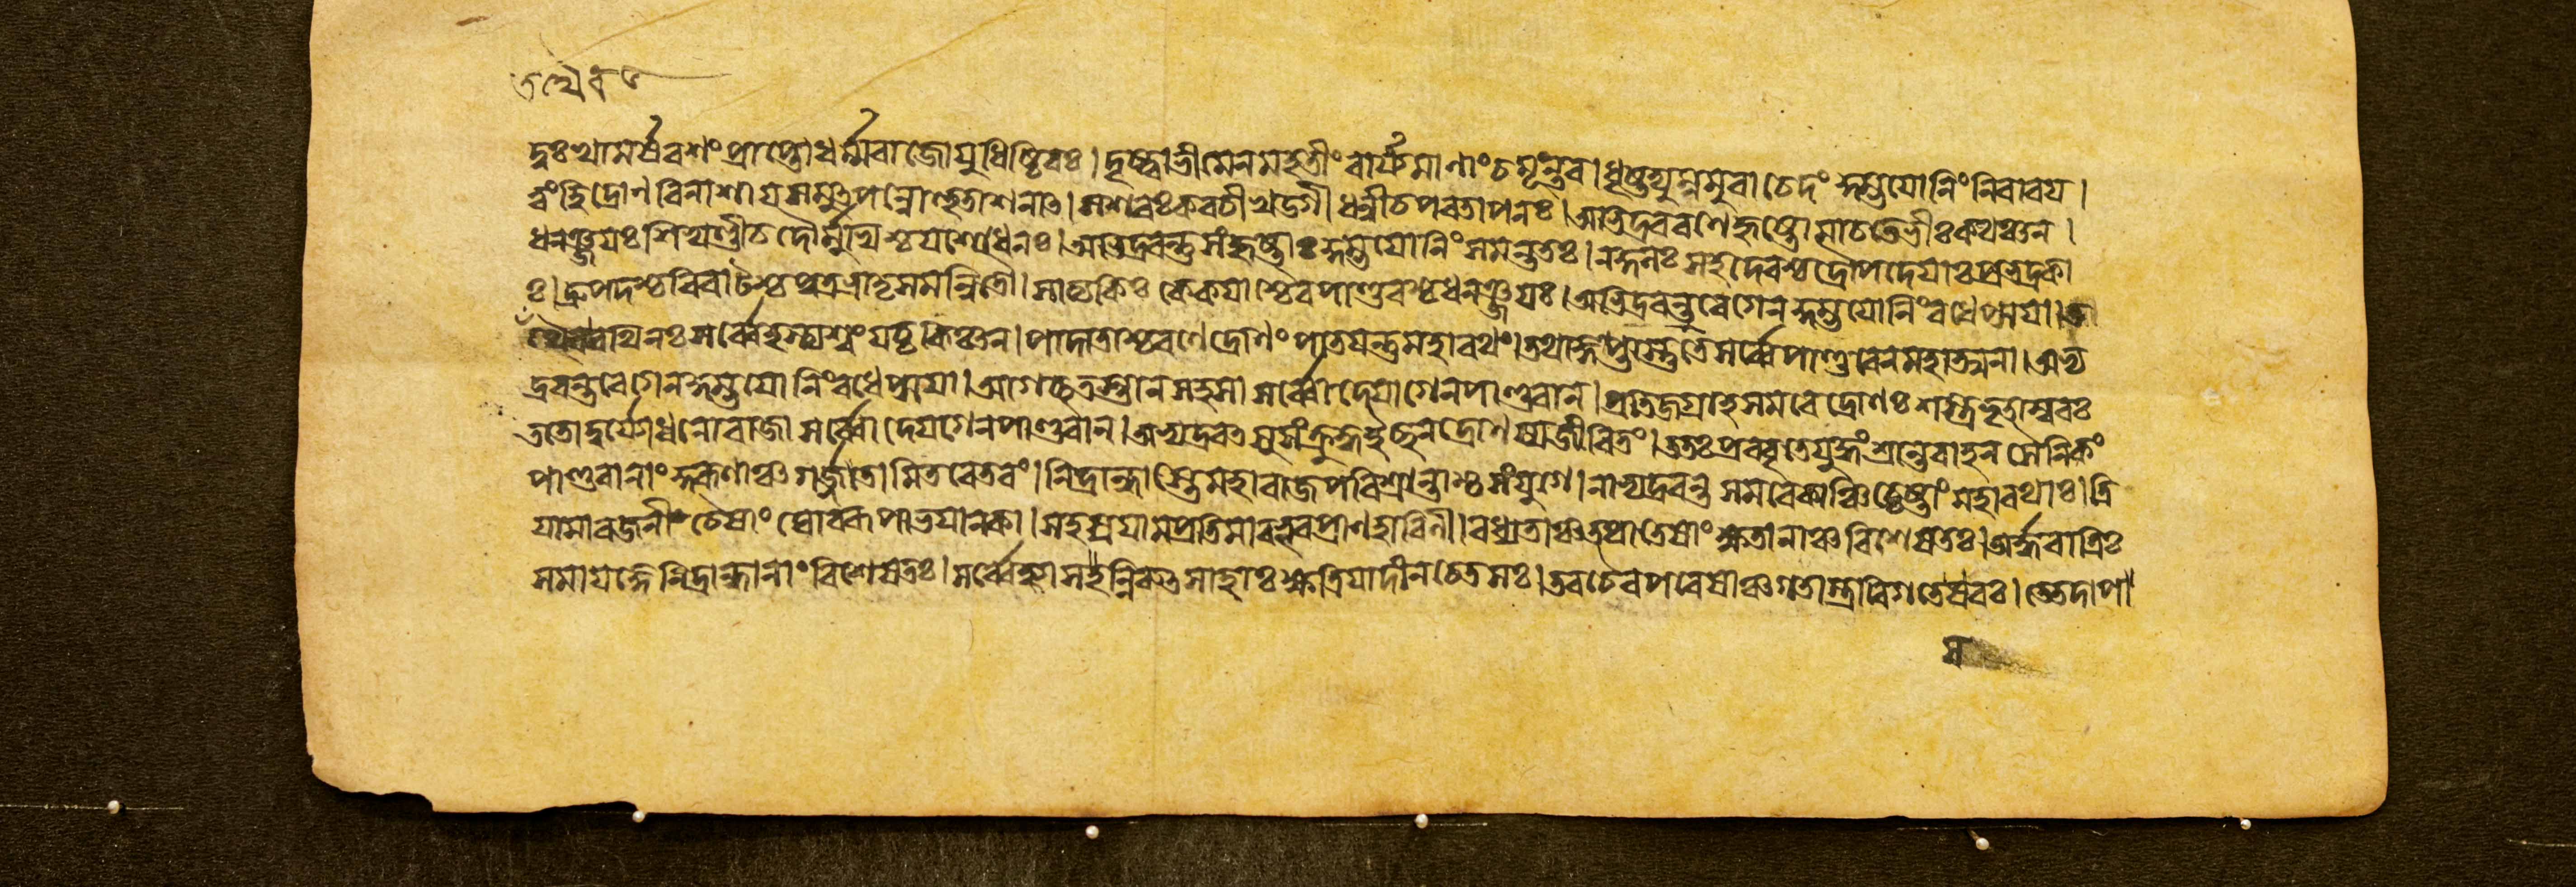 দুঃখামর্ষবশং প্রাপ্তো ধর্ম্মরাজো যুধিষ্ঠিরঃ। দৃষ্ট্বা ভীমেন মহতীং বার্য্যমাণাং চমূন্তব। ধৃষ্টদ্যুম্নমুবাচেদং কুম্ভযোনিং নিবারয।
ত্বং হি দ্রোণবিনাশায সমুৎপন্নো হুতাশনাৎ। সশরঃ কবচী খড্গী ধন্বী চ পরতাপনঃ। অভিদ্রব রণে হৃষ্টো মা চ তে ভীঃ কথঞ্চন।
ধনঞ্জযঃ শিখণ্ডী চ দৌর্ম্মুখিশ্চ যশোধনঃ। অভিদ্রবন্তু সংহৃষ্টাঃ কুম্ভযোনিং সমন্ততঃ। নকুলঃ সহদেবশ্চ দ্রৌপদেযাঃ প্রভদ্রকা
ঃ। দ্রুপদশ্চ বিরাটশ্চ পুত্রভ্রাতৃসমন্বিতৌ। সাত্যকিঃ কেকযাশ্চৈব পাণ্ডবশ্চ ধনঞ্জযঃ। অভিদ্রবন্তু বেগেন কুম্ভযোনিং বধেপ্সযা। ত
থৈব রথিনঃ সর্ব্বে হস্ত্যশ্বং যচ্চ কিঞ্চন। পাদাতাশ্চ রণে দ্রোণং পাতযন্তু মহারথং। তথাজ্ঞপ্তাস্তু তে সর্ব্বে পাণ্ডবেন মহাত্মনা। অভ্য
দ্রবন্ত বেগেন কুম্ভযোনিং বধেপ্সযা। আগচ্ছতস্তান্ সহসা সর্ব্বোদ্যোগেন পাণ্ডবান্। প্রতিজগ্রাহ সমরে দ্রোণঃ শস্ত্রভৃতাম্বরঃ
ততো দুর্য্যোধনো রাজা সর্ব্বোদ্যোগেন পাণ্ডবান্। অভ্যদ্রবৎ সুসংক্রুদ্ধ ইচ্ছন্ দ্রোণস্য জীবিতং। ততঃ প্রববৃতে যুদ্ধং শ্রান্তবাহনসৈনিকং
পাণ্ডবানাং কুরূণাঞ্চ গর্জ্জতামিতরেতরং। নিদ্রান্ধাস্তে মহারাজ পরিশ্রান্তাশ্চ সংযুগে। নাভ্যদ্রবন্ত সমরে কাঞ্চিচ্চেষ্টাং মহারথাঃ। ত্রি
যামা রজনী চৈষাং ঘোররূপা ভযানকা। সহস্রযামপ্রতিমা বভূব প্রাণহারিণী। বধ্যতাঞ্চ তথা তেষাং ক্ষতানাঞ্চ বিশেষতঃ। অর্দ্ধরাত্রিঃ
সমাযজ্ঞে নিদ্রান্ধানাং বিশেষতঃ। সর্ব্বে হ্যাসন্নিরুৎসাহাঃ ক্ষত্রিযা দীনচেতসঃ। তব চৈব পরেষাঞ্চ গতাস্ত্রা বিগতেষবঃ। তে তদা পা